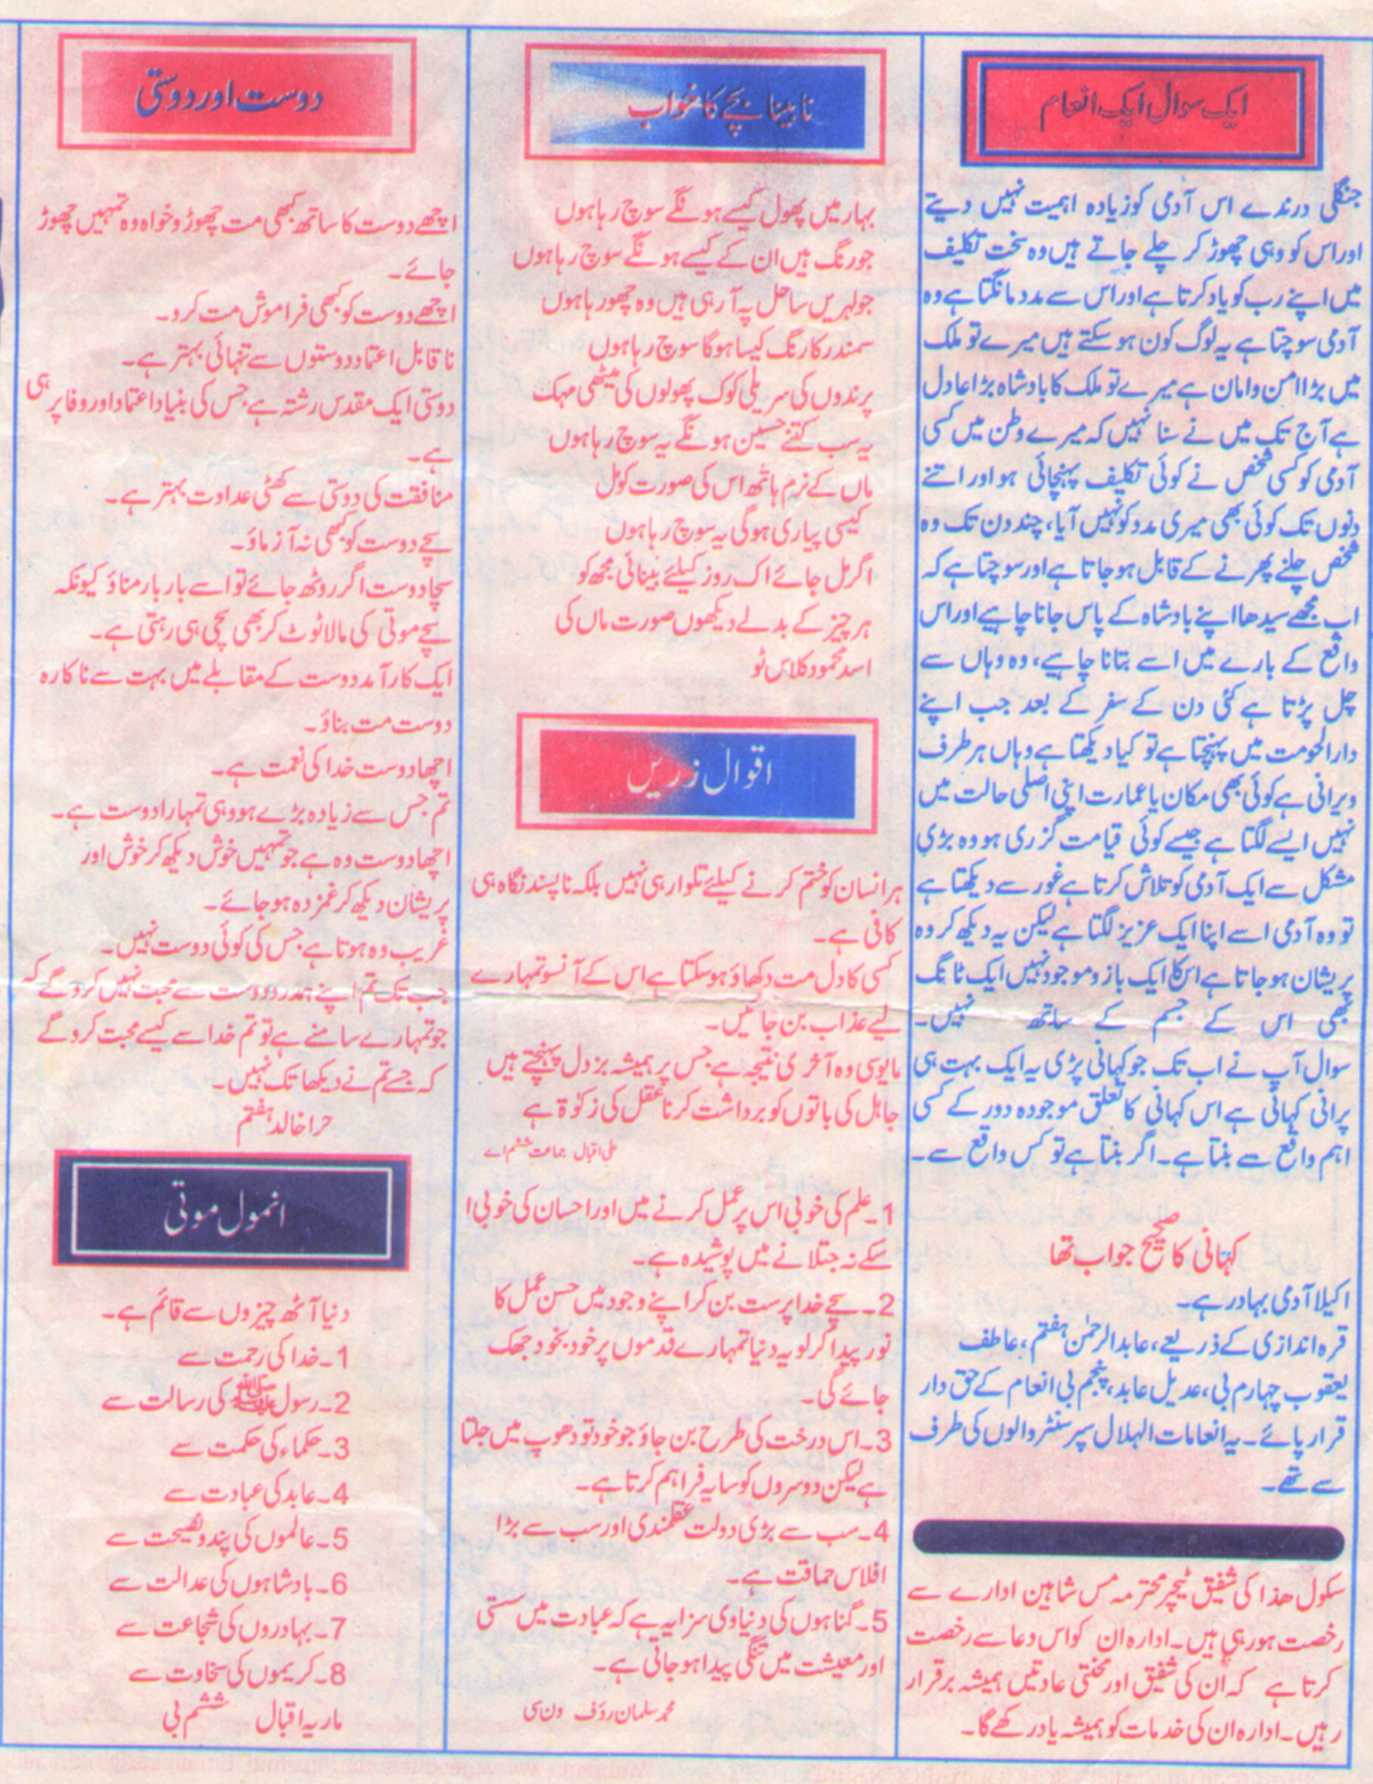 ایک سوال ایک انعام
جنگلی درندے اس آدمی کو زیادہ اہمیت نہیں دیتے
اور اس کو وہی چھوڑ کر چلے جاتے ہیں وہ سخت تکلیف
میں اپنے رب کو یاد کرتا ہے اور اس سے مدد مانگتا ہے وہ
آدمی سوچتا ہے یہ لوگ کون ہو سکتے ہیں میرے تو ملک
میں بڑا امن و امان ہے میرے تو ملک کا بادشاہ بڑا عادل
ہے آج تک میں نے سنا نہیں کہ میرے وطن میں کسی
آدمی کو کسی شخص نے کوئی تکلیف پہنچائی ہو اور اتنے
دنوں تک کوئی بھی میری مدد کو نہیں آیا، چند دن تک وہ
شخص چلنے پھرنے کے قابل ہو جاتا ہے اور سوچتا ہے کہ
اب مجھے سیدھا اپنے بادشاہ کے پاس جانا چاہیے اور اس
واقع کے بارے میں اسے بتانا چاہیے، وہ وہاں سے
چل پڑتا ہے کئی دن کے سفر کے بعد جب اپنے
دارالحومت میں پہنچتا ہے تو کیا دیکھتا ہے وہاں ہر طرف
ویرانی ہے کوئی بھی مکان یا عمارت اپنی اصلی حالت میں
نہیں ایسے لگتا ہے جیسے کوئی قیامت گزری ہو وہ بڑی
مشکل سے ایک آدمی کو تلاش کرتا ہے غور سے دیکھتا ہے
تو وہ آدمی اسے اپنا ایک عزیز لگتا ہے لیکن یہ دیکھ کر وہ
پریشان ہو جاتا ہے اس کا ایک بازو موجود نہیں ایک ٹانگ
بھی اس کے جسم کے ساتھ نہیں۔
سوال آپ نے اب تک جو کہانی پڑی یہ ایک بہت ہی
پرانی کہانی ہے اس کہانی کا تعلق موجودہ دور کے کسی
اہم واقع سے بنتا ہے۔ اگر بنتا ہے تو کس واقع سے۔
کہانی کا صحیح جواب تھا
اکیلا آدمی بہادر ہے۔
قرہ اندازی کے ذریعے، عابدالرحمٰن ہفتم، عاطف
یعقوب چہارم بی، عدیل عابد، پنجم بی انعام کے حق دار
قرار پائے۔ یہ انعامات الہلال سپر سنٹر والوں کی طرف
سے تھے۔
سکول ھذا کی شفیق ٹیچر محترمہ مس شاہین ادارے سے
رخصت ہو رہی ہیں۔ ادارہ ان کو اس دعا سے رخصت
کرتا ہے کہ ان کی شفیق اور محنتی عادتیں ہمیشہ برقرار
رہیں۔ ادارہ ان کی خدمات کو ہمیشہ یاد رکھے گا۔
نابینا بچے کا خواب
بہار میں پھول کیسے ہونگے سوچ رہا ہوں
جو رنگ ہیں ان کے کیسے ہونگے سوچ رہا ہوں
جو لہریں ساحل پہ آ رہی ہیں وہ چھو رہا ہوں
سمندر کا رنگ کیسا ہوگا سوچ رہا ہوں
پرندوں کی سریلی کوک پھولوں کی میٹھی مہک
یہ سب کتنے حسین ہونگے یہ سوچ رہا ہوں
ماں کے نرم ہاتھ اس کی صورت کومل
کیسی پیاری ہوگی یہ سوچ رہا ہوں
اگر مل جائے اک روز کیلئے بینائی مجھ کو
ہر چیز کے بدلے دیکھوں صورت ماں کی
اسد محمود کلاس ٹو
اقوال زریں
ہر انسان کو ختم کرنے کیلئے تلوار ہی نہیں بلکہ ناپسند نگاہ ہی
کافی ہے۔
کسی کا دل مت دکھاؤ ہو سکتا ہے اس کے آنسو تمہارے
لیے عذاب بن جائیں۔
مایوسی وہ آخری نتیجہ ہے جس پر ہمیشہ بزدل پہنچتے ہیں
جاہل کی باتوں کو برداشت کرنا عقل کی زکوٰۃ ہے
علی اقبال جماعت ششم اے
1۔ علم کی خوبی اس پر عمل کرنے میں اور احسان کی خوبی ا
سکے نہ جتلانے میں پوشیدہ ہے۔
2۔ سچے خدا پرست بن کر اپنے وجود میں حسن عمل کا
نور پیدا کر لو یہ دنیا تمہارے قدموں پر خود بخود جھک
جائے گی۔
3۔ اس درخت کی طرح بن جاؤ جو خود تو دھوپ میں جلتا
ہے لیکن دوسروں کو سایہ فراہم کرتا ہے۔
4۔ سب سے بڑی دولت عقلمندی اور سب سے بڑا
افلاس حماقت ہے۔
5۔ گناہوں کی دنیاوی سزا یہ ہے کہ عبادت میں سستی
اور معیشت میں تنگی پیدا ہو جاتی ہے۔
محمد سلمان رؤف ون سی
دوست اور دوستی
اچھے دوست کا ساتھ کبھی مت چھوڑو خواہ وہ تمہیں چھوڑ
جائے۔
اچھے دوست کو کبھی فراموش مت کرو۔
ناقابل اعتماد دوستوں سے تنہائی بہتر ہے۔
دوستی ایک مقدس رشتہ ہے، جس کی بنیاد اعتماد اور وفا پر ہی
ہے۔
منافقت کی دوستی سے کھٹی عداوت بہتر ہے۔
سچے دوست کو کبھی نہ آزماؤ۔
سچا دوست اگر روٹھ جائے تو اسے بار بار مناؤ کیونکہ
سچے موتی کی مالا ٹوٹ کر بھی سچی ہی رہتی ہے۔
ایک کارآمد دوست کے مقابلے میں بہت سے ناکارہ
دوست مت بناؤ۔
اچھا دوست خدا کی نعمت ہے۔
تم جس سے زیادہ بڑے ہو وہی تمہارا دوست ہے۔
اچھا دوست وہ ہے جو تمہیں خوش دیکھ کر خوش اور
پریشان دیکھ کر غمزدہ ہو جائے۔
غریب وہ ہوتا ہے جس کی کوئی دوست نہیں۔
جب تک تم اپنے ہمدرد دوست سے محبت نہیں کرو گے کہ
جو تمہارے سامنے ہے تو تم خدا سے کیسے محبت کرو گے
کہ جسے تم نے دیکھا تک نہیں۔
حرا خالد ہفتم
انمول موتی
دنیا آٹھ چیزوں سے قائم ہے۔
1۔ خدا کی رحمت سے
2۔ رسول ﷺ کی رسالت سے
3۔ حکماء کی حکمت سے
4۔ عابد کی عبادت سے
5۔ عالموں کی پند و نصیحت سے
6۔ بادشاہوں کی عدالت سے
7۔ بہادروں کی شجاعت سے
8۔ کریموں کی سخاوت سے
ماریہ اقبال ششم بی